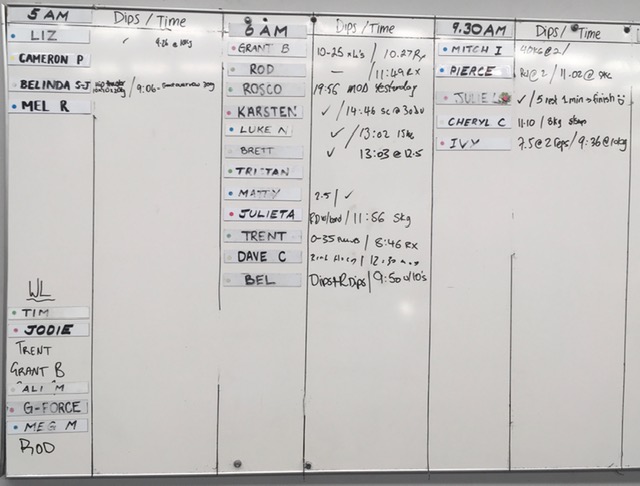 5 AM Dips / Time
LIZ ✓
CAMERON P
BELINDA S-J 9:06
MEL R
WL
TIM
JODIE
TRENT
GRANT B
ALI M
G-FORCE
MEG M
ROD
6 AM Dips / Time
GRANT B 10-25 / 10.27 Rx
ROD — / 11:49 RX
ROSCO 19:56 MOD Yesterday
KARSTEN ✓ / 14:46
LUKE N ✓ / 13:02
BRETT ✓ 13:03 @ 12.5
TRISTAN
MATTY 2.5 / ✓
JULIETA / 11:56 5kg
TRENT 0-35 / 8:46 RX
DAVE C / 12:30
BEL Dips + R Dips / 9:50 w/10's
9.30AM Dips / Time
MITCH I @ 2 /
PIERCE @ 2 / 11:02 @
JULIE ✓ / 5 1 min → finish
CHERYL C 11:10 / 8kg
IVY 7.5 @ 2 reps / 9:36 @ 10kg